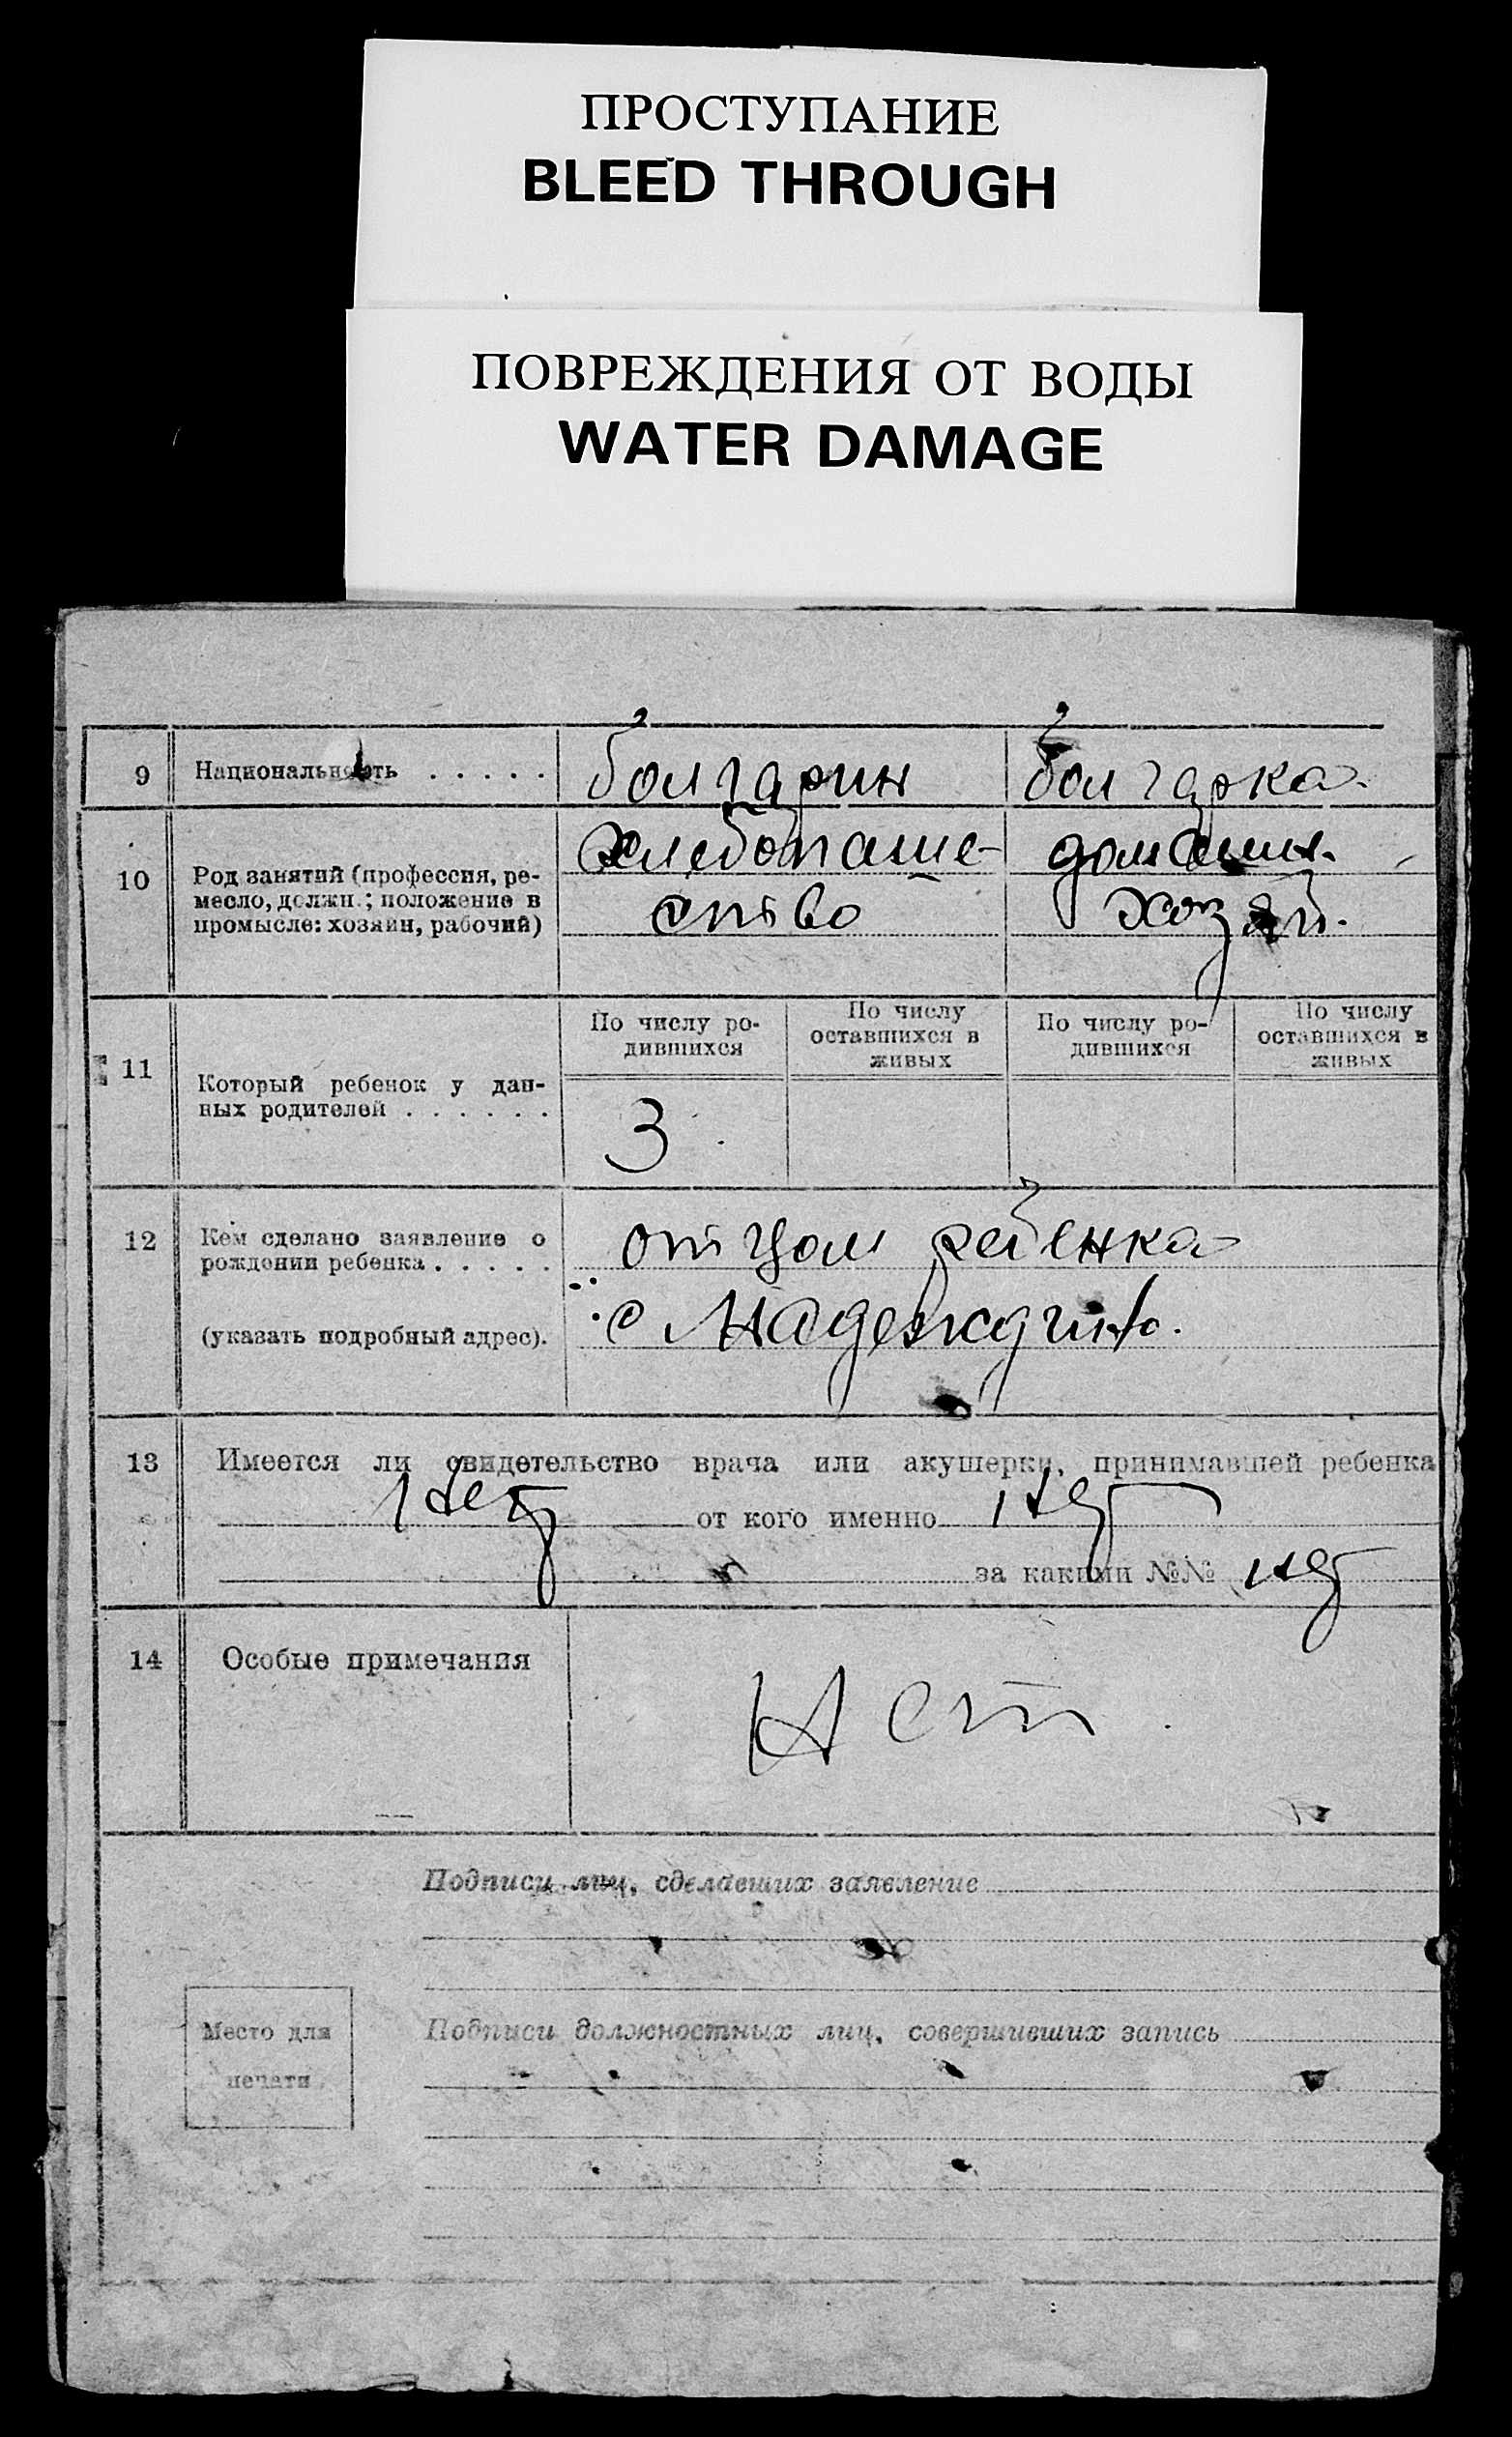 ПРОСТУПАНИЕ
BLEED THROUGH
ПОВРЕЖДЕНИЯ ОТ ВОДЫ
WATER DAMAGE
9 Национальность . . . . . болгарин болгарка
10 Род занятий (профессия, ре-
месло, должн.; положение в
промысле: хозяин, рабочий)
хлебопаше-
ство
домашн.
хозяй.
11 Который ребенок у дан-
ных родителей . . . . . .
По числу ро-
дившихся
По числу
оставшихся в
живых
По числу ро-
дившихся
По числу
оставшихся в
живых
3
12 Кем сделано заявление о
рождении ребенка . . . . .
(указать подробный адрес).
отцом ребенка
с
13 Имеется ли свидетельство врача или акушерки, принимавшей ребенка
нет от кого именно нет
за какими №№ нет
14 Особые примечания Нет
Подписи лиц, сделавших заявление
Место для
печати
Подписи должностных лиц, совершивших запись